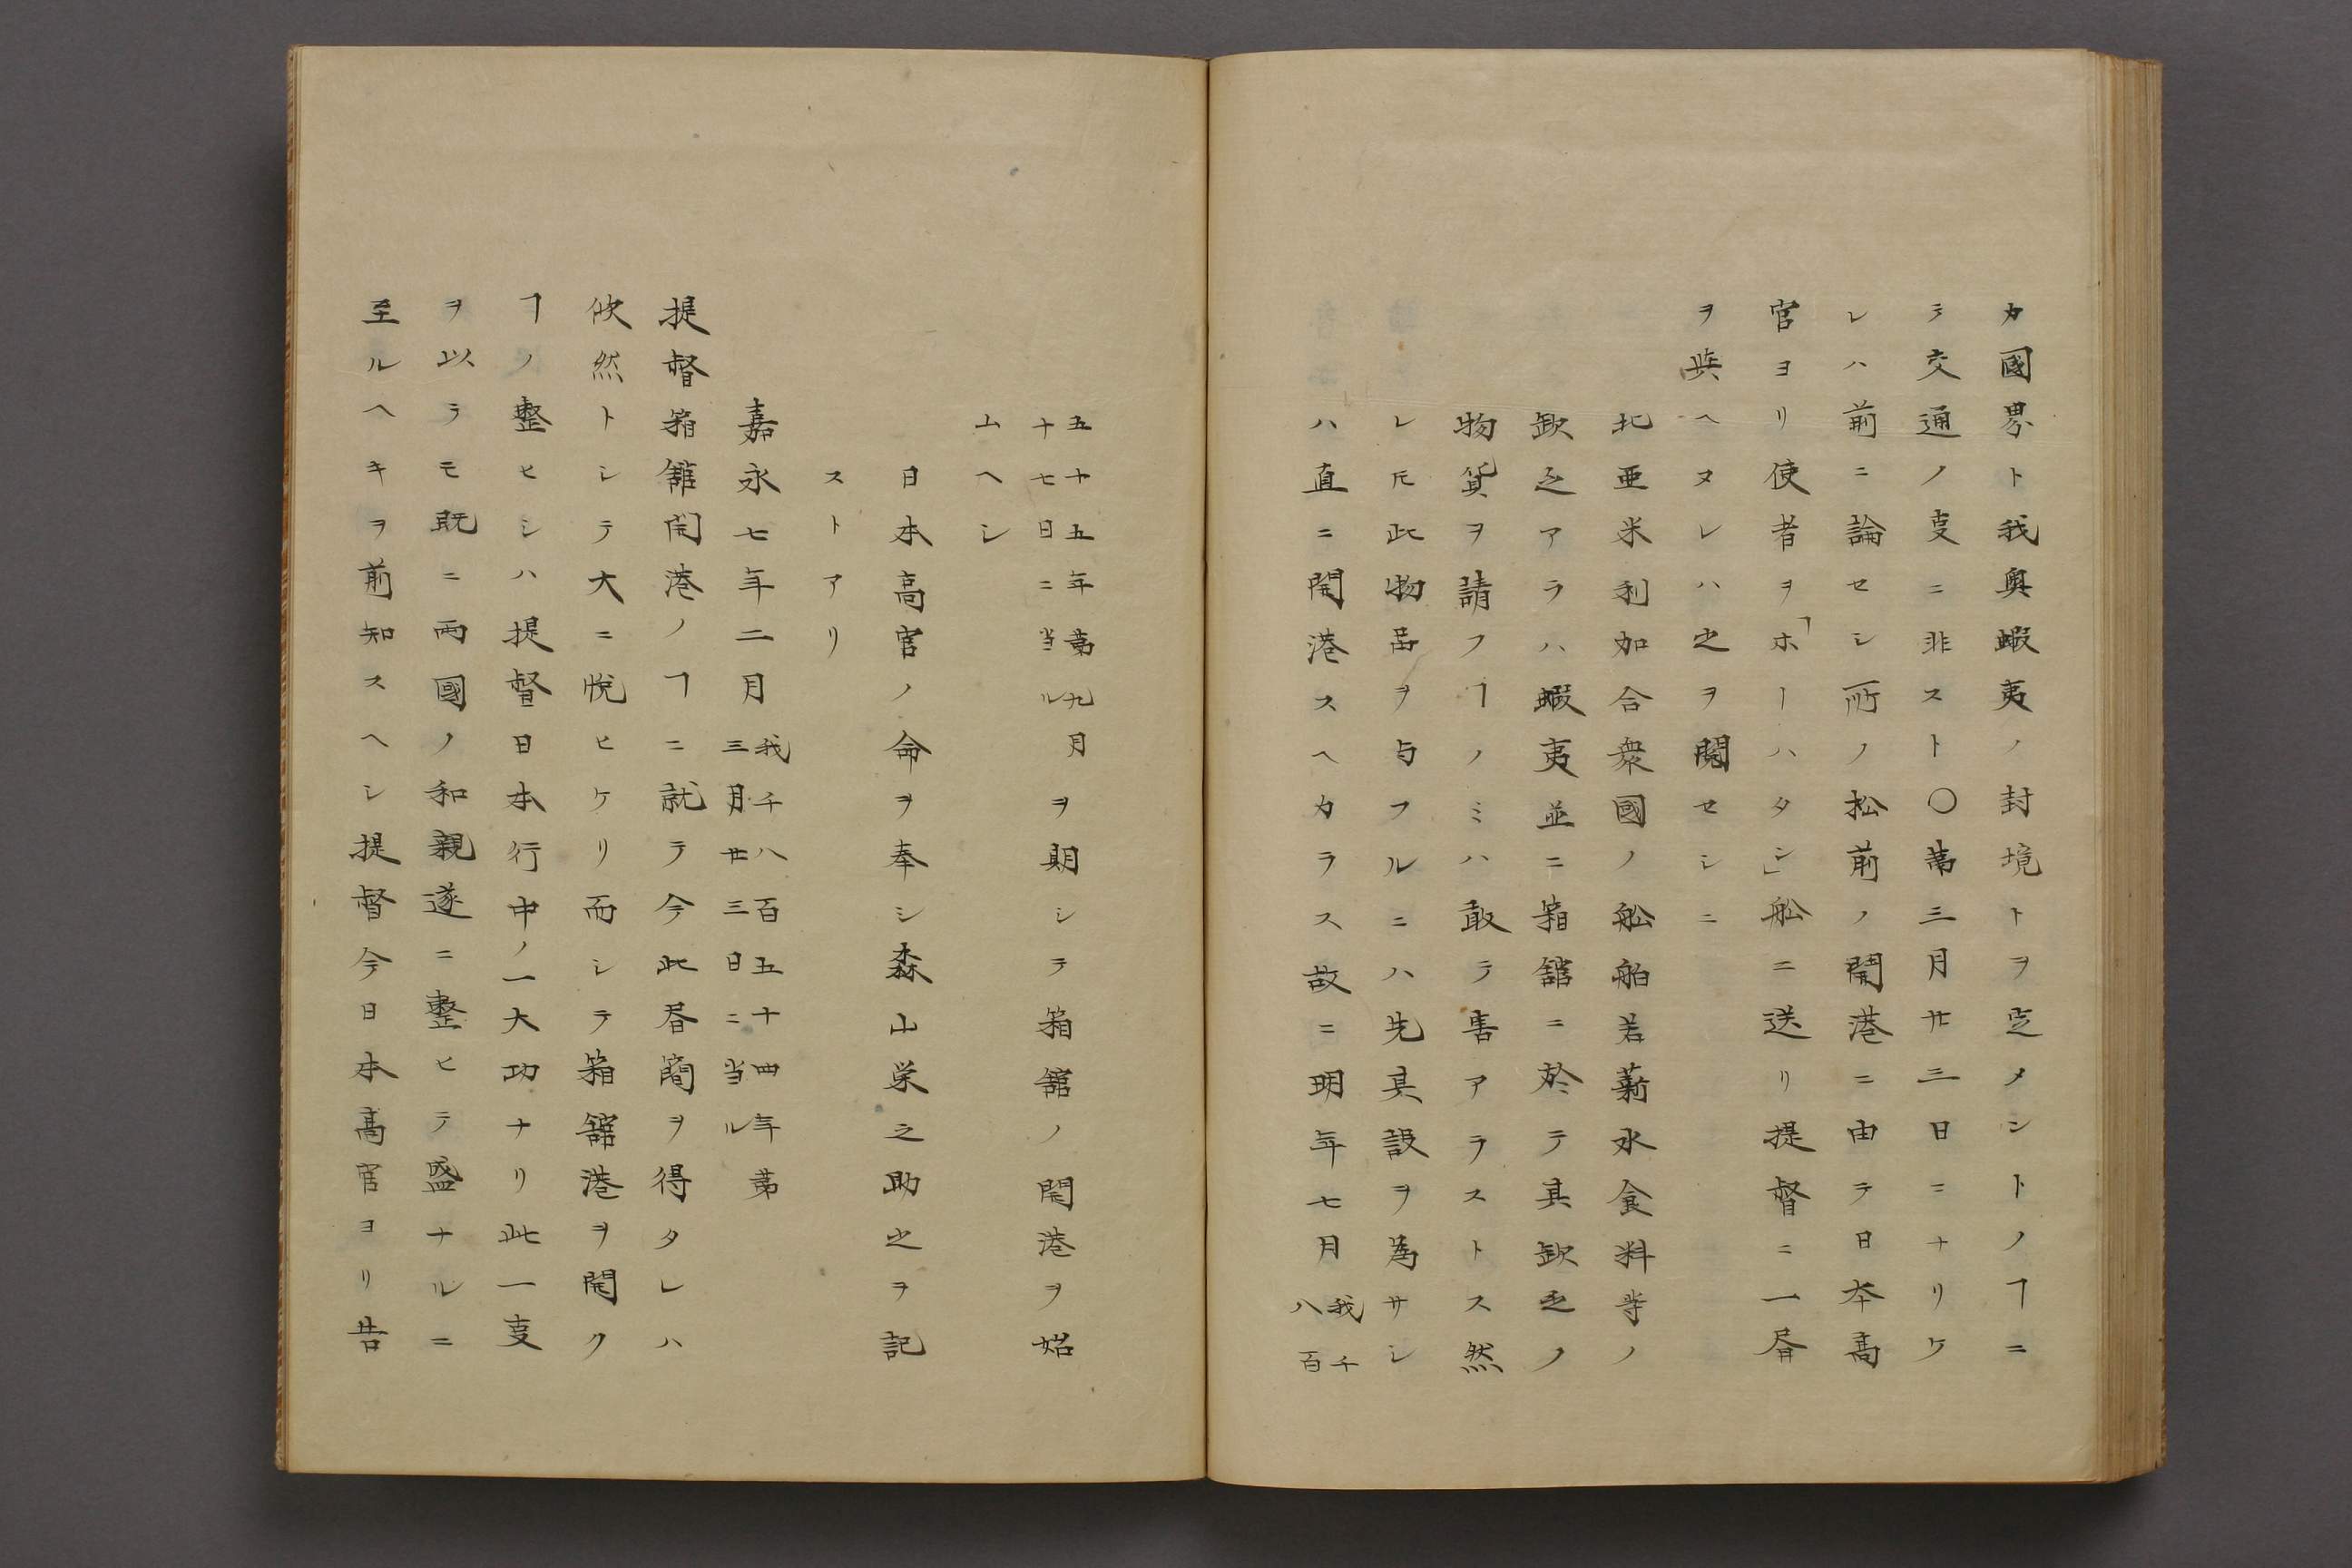 カ國界ト我奥蝦夷ノ封境トヲ定メシトノヿニ
テ交通ノ叓ニ非スト〇第三月廿三日ニナリケ
レハ前ニ論セシ所ノ松前ノ開港ニ由テ日本髙
官ヨリ使者ヲ「ホーハタン」舩ニ送リ提督ニ一書
ヲ與ヘヌレハ之ヲ閲セシニ
北亜米利加合衆國ノ舩舶若薪水食料等ノ
缺乏アラハ蝦夷並ニ箱舘ニ於テ其缺乏ノ
物貨ヲ請フヿノミハ敢テ害アラストス然
レ𪜈此物品ヲ与フルニハ先其設ヲ為サシ
ハ直ニ開港スヘカラス故ニ明年七月我千八百
五十五年第九月十七日ニ当ルヲ期シテ箱舘ノ開港ヲ始
ムヘシ
日本高官ノ命ヲ奉シ森山栄之助之ヲ記
ストアリ
嘉永七年二月我千八百五十四年第三月廿三日ニ当ル
提督箱舘開港ノヿニ就テ今此書簡ヲ得タレハ
快然トシテ大ニ悦ヒケリ而シテ箱舘港ヲ開ク
ヿノ整ヒシハ提督日本行中ノ一大功ナリ此一叓
ヲ以テモ既ニ兩國ノ和親遂ニ整ヒテ盛ナルニ
至ルヘキヲ前知スヘシ提督今日本髙官ヨリ告